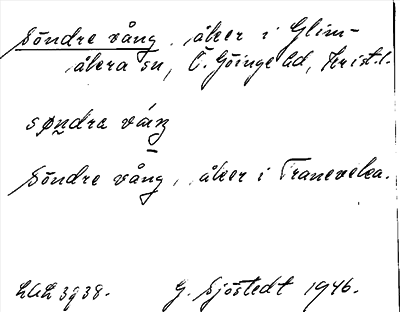 Söndre vång, åker i Glim-
åkra sn, Ö. Göinge hd, Krist. l.
søndra váŋ
Söndre vång, åker i Tranevela.
LUL 3938. G. Sjöstedt 1946.